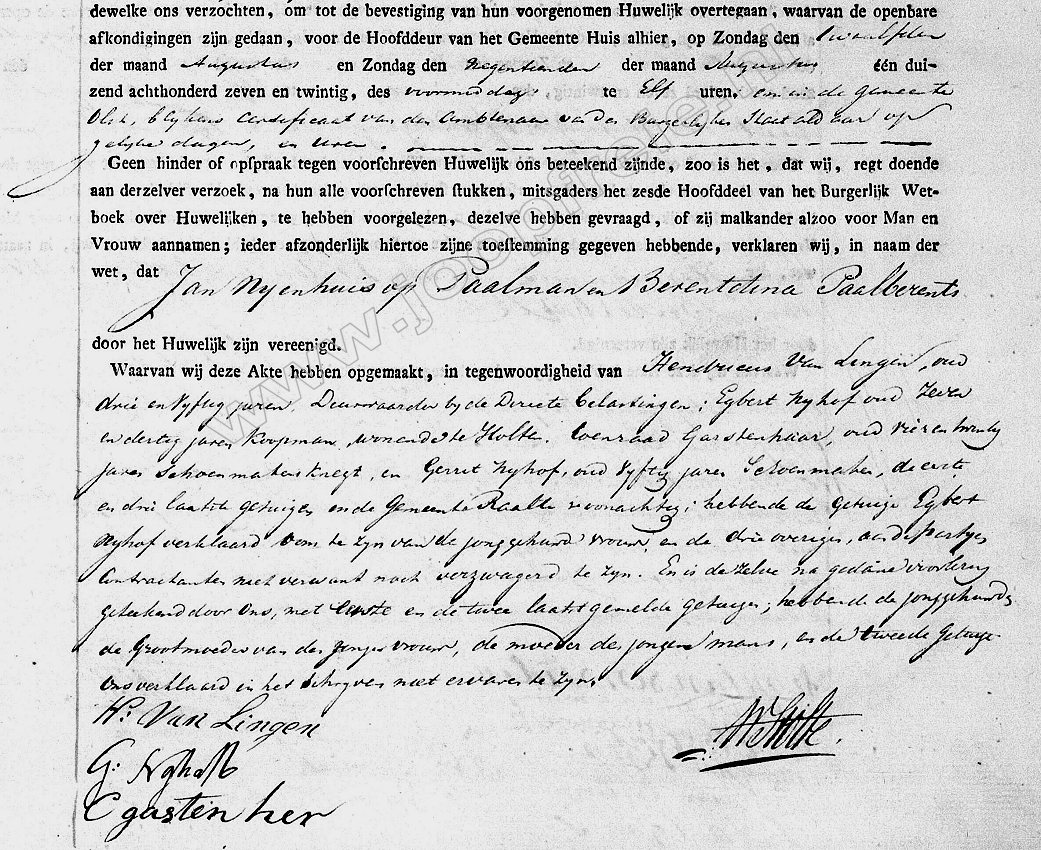 dewelke ons verzochten, om tot de bevestiging van hun voorgenomen Huwelijk overtegaan, waarvan de openbare
afkondigingen zijn gedaan, voor de Hoofddeur van het Gemeente Huis alhier, op Zondag den twaalfden
der maand Augustus en Zondag den Negentienden der maand Augustus één dui-
zend achthonderd zeven en twintig, des voormiddags te Elf uren, en in de Gemeente
Olst, blijkens Certificaat van den Ambtenaar van den Burgerlijken Staat aldaar op
gelijke dagen, en Uren.
Geen hinder of opspraak tegen voorschreven Huwelijk ons beteekend zijnde, zoo is het, dat wij, regt doende
aan derzelver verzoek, na hun alle voorschreven stukken, mitsgaders het zesde Hoofddeel van het Burgerlijk Wet-
boek over Huwelijken, te hebben voorgelezen, dezelve hebben gevraagd, of zij malkander alzoo voor Man en
Vrouw aannamen; ieder afzonderlijk hiertoe zijne toestemming gegeven hebbende, verklaren wij, in naam der
wet, dat Jan Nyenhuis op Paalman en Berentdina Paalberents
door het Huwelijk zijn vereenigd.
Waarvan wij deze Akte hebben opgemaakt, in tegenwoordigheid van Hendricus Van Lingen, oud
drie en Vyftig jaren Deurwaarder by de Directe Belastingen; Egbert Nyhof oud Zeven
en dertig jaren Koopman, wonende te Holte. Coenraad Garstenhaar, oud vier en twintig
jaren Schoenmakersknegt, en Gerret Nyhof, oud Vyftig jaren Schoenmaker, de eerste
en drie laatste getuigen in de Gemeente Raalte woonachtig; hebbende de getuige Egbert
Nyhof verklaard Oom te zyn van de jonggehuwd vrouw, en de drie overigen, aan de partyen
Contractanten niet verwant noch verzwagerd te zyn. En is dezelve na gedane voorlezing
geteekend door Ons, met Eerste en de twee laatst gemelde getuigen; hebbende de jonggehuwden
de Grootmoeder van der jonge vrouw, de moeder des jongen mans, en de tweede getuige
Ons verklaard in het Schryven niet ervaren te zyn.
H: Van Lingen
G: Nyhoff
C gasten her
www.joopfrele.nl